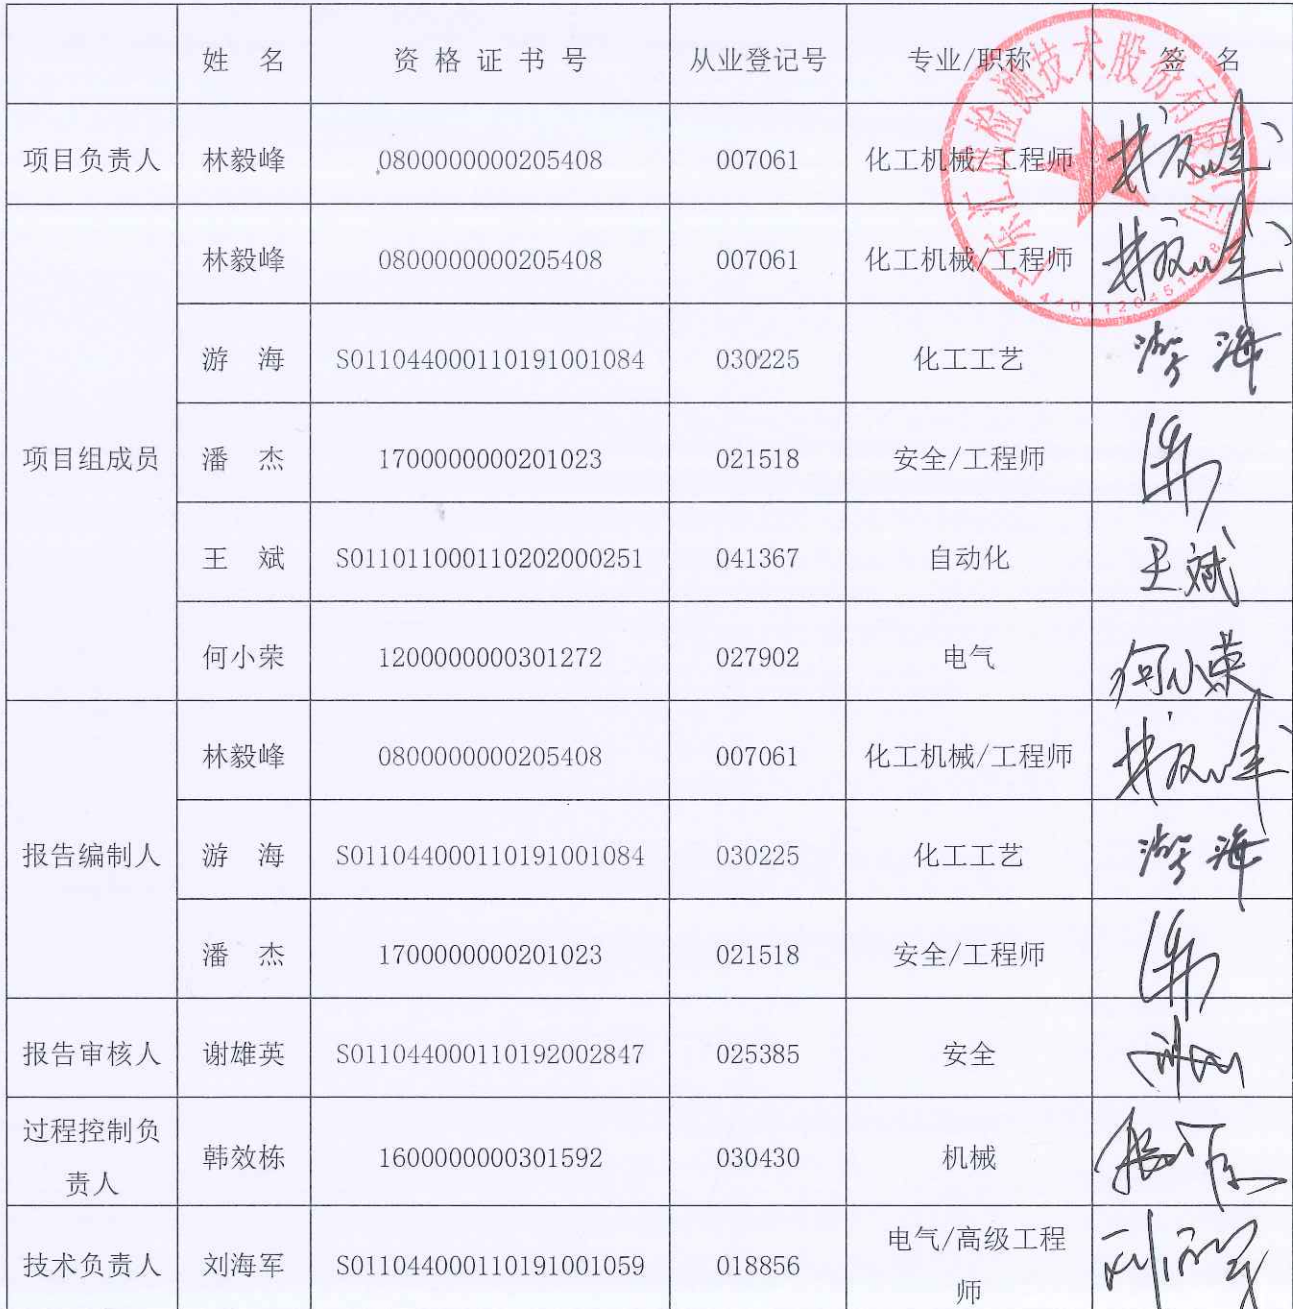 姓 名 资 格 证 书 号 从业登记号 专业/职称 签 名
项目负责人 林毅峰 0800000000205408 007061 化工机械/工程师 林毅峰
项目组成员 林毅峰 0800000000205408 007061 化工机械/工程师 林毅峰
游 海 S011044000110191001084 030225 化工工艺 游海
潘 杰 1700000000201023 021518 安全/工程师
王 斌 S011011000110202000251 041367 自动化 王斌
何小荣 1200000000301272 027902 电气 何小荣
报告编制人 林毅峰 0800000000205408 007061 化工机械/工程师 林毅峰
游 海 S011044000110191001084 030225 化工工艺 游海
潘 杰 1700000000201023 021518 安全/工程师
报告审核人 谢雄英 S011044000110192002847 025385 安全
过程控制负
责人 韩效栋 1600000000301592 030430 机械
技术负责人 刘海军 S011044000110191001059 018856 电气/高级工程
师 刘海军
广东汇成检测技术股份有限公司